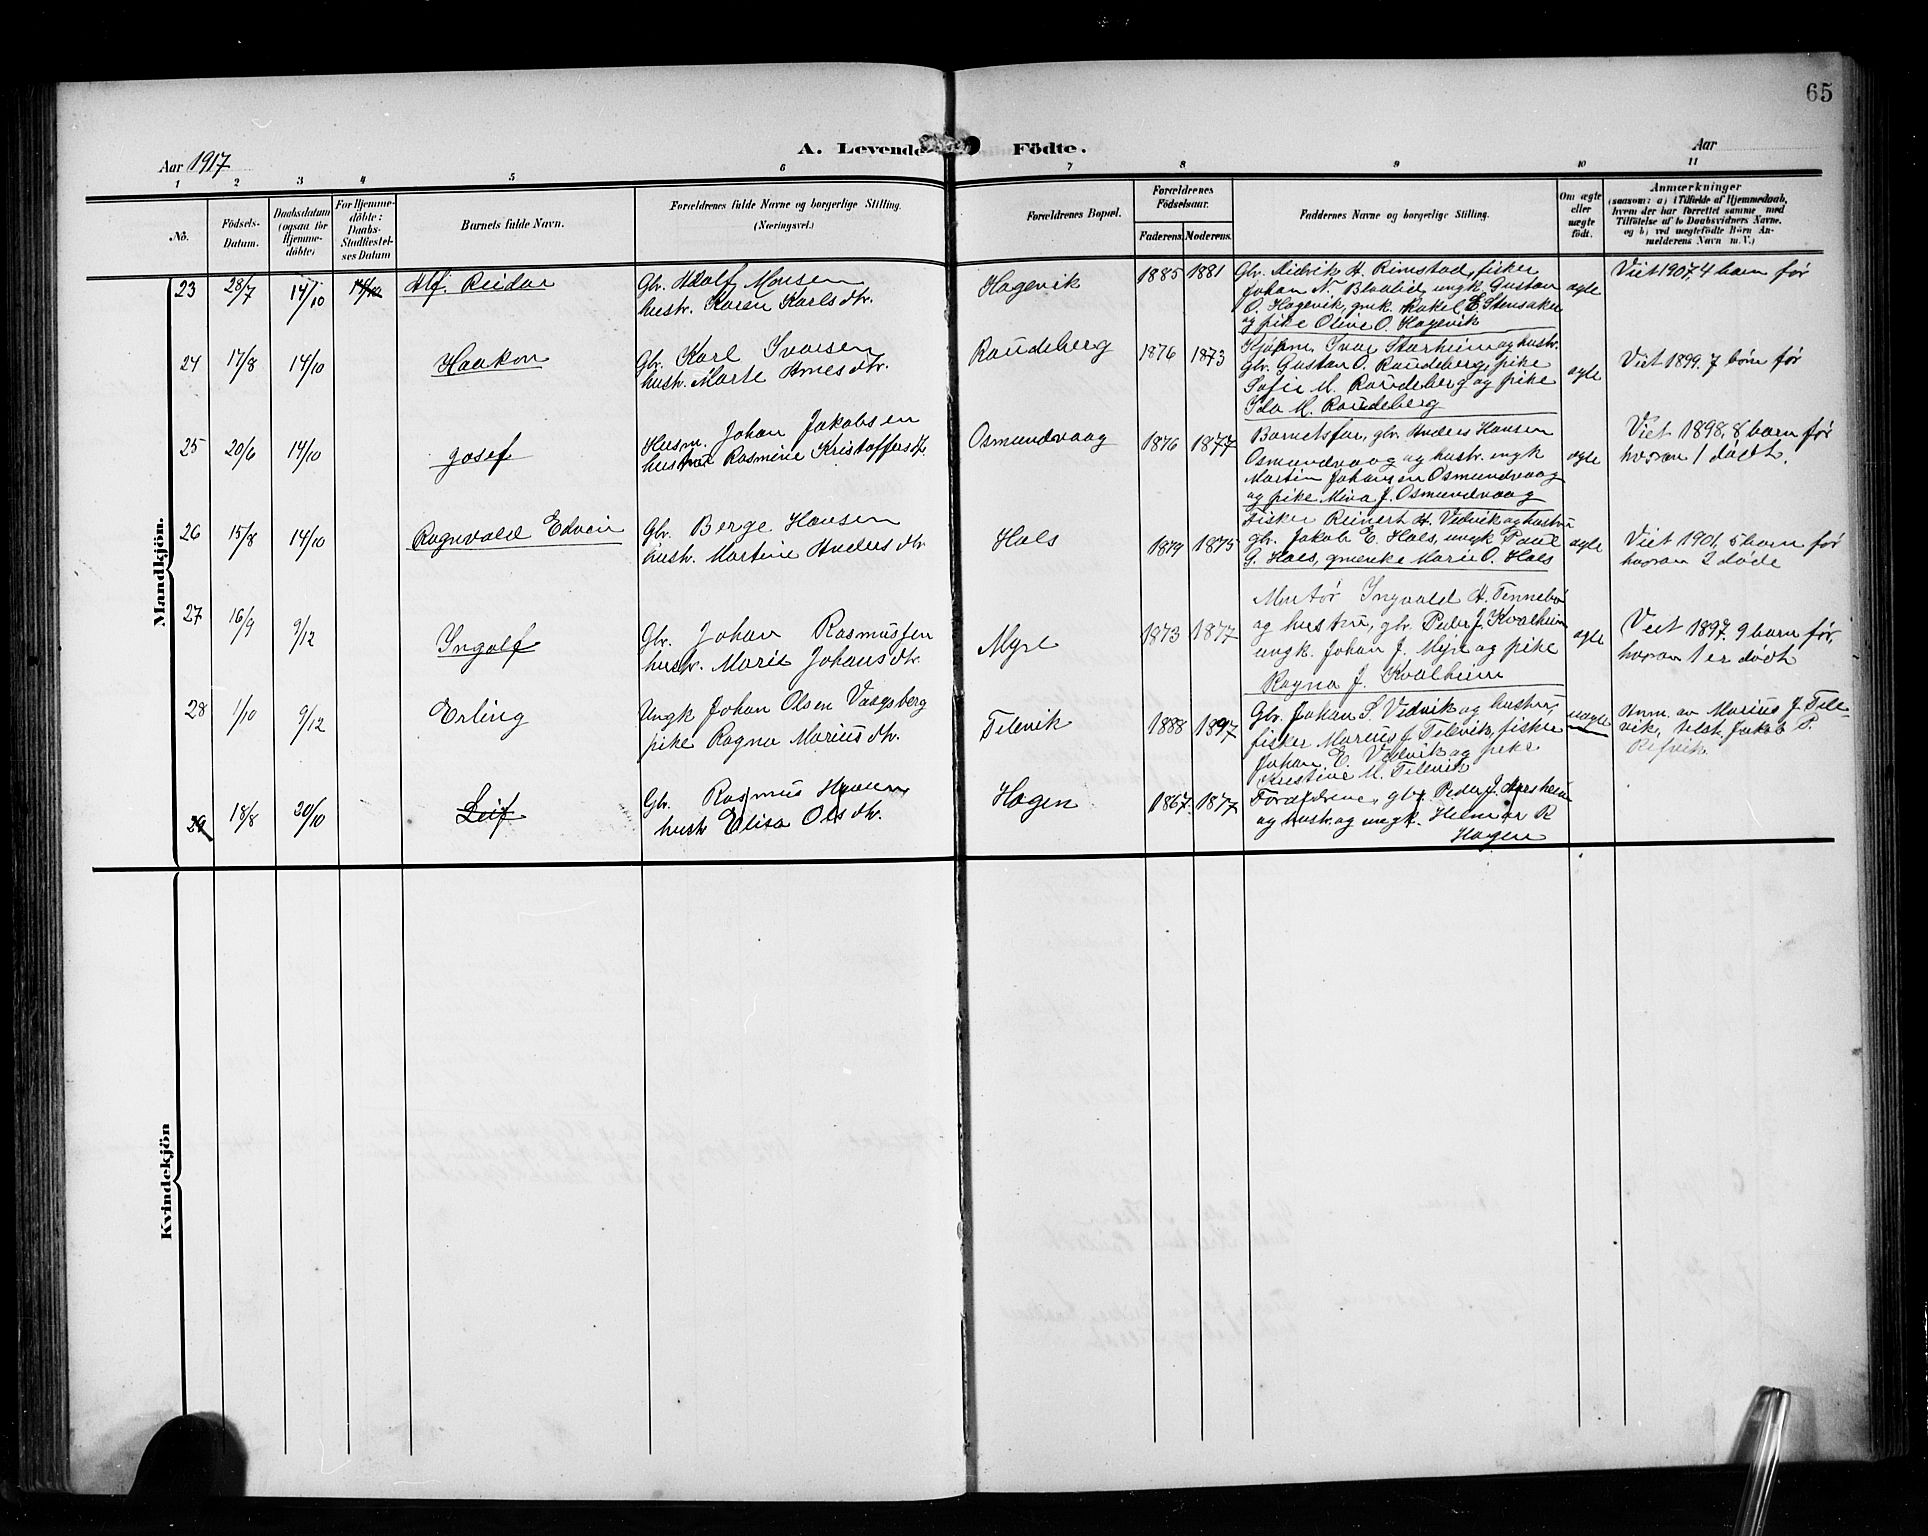 65
A. Levende Födte.
Aar 1917
Aar
1 2 3 4 5 6 7 8 9 10 11
No.
Födsels-
Datum.
Daabsdatum
(ogsaa for
Hjemme-
döbte)
For Hjemme-
döbte:
Daabs-
Stadfæstel-
ses Datum
Barnets fulde Navn.
Forældrenes fulde Navne og borgerlige Stilling.
(Næringsvei.)
Forældrenes Bopæl.
Forældrenes
Födselsaar.
Faderens. Moderens.
Faddernes Navne og borgerlige Stilling.
Om ægte
eller
uægte
født.
Anmærkninger
(saasom: a) i Tilfælde af Hjemmedaab,
hvem der har forrettet samme med
Tilföielse af to Daabsvidners Navne,
og b) ved uægtefödte Börn An-
melderens Navn m. V.)
Mandkjön.
23 28/7 14/10 14/10 Alf. Reidar
Gbr. Adolf Monsen
hustr. Karen Karlsdtr.
Hagevik 1885 1881
Gbr. Didrik H. Rimstad, fisker
Johan N. Blaalid, ungk. Gustav
O. Hagevik, gmk. Rakel E. Stensaker
og pike Olive O. Hagevik
ægte
Viet 1907, 4 barn før
24 17/8 14/10 Haakon
Gbr. Karl Ivarsen
hustr. Marte Arnesdtr.
Raudeberg 1876 1873
Kjøpm. Ivar Starheim og hustr.
Gbr. Gustav O. Raudeberg, pike
Sofie M. Raudeberg og pike
Ida M. Raudeberg
ægte
Viet 1899. 7 børn før
25 20/6 14/10 Josef
Husm. Johan Jakobsen
hustru Rasmine Kristoffersdtr
Osmundvaag 1876 1877
Barnets far, gbr. Anders Hansen
Osmundvaag og hustr. ungk
Martin Johansen Osmundvaag
og pike Mina J. Osmundvaag
ægte
Viet 1898, 8 barn før
hvorav 1 dødt.
26 15/8 14/10 Ragnvald Edvin
Gbr. Berge Hansen
hustr. Martine Andersdtr
Hals 1879 1875
Fisker Reinert H. Vedvik og hustru
gbr. Jakob E. Hals, ungk Paul
G. Hals, gmenke Marie O. Hals
ægte
Viet 1901, 5 barn før
hvorav 2 døde
27 16/9 9/12 Ingolf
Gbr. Johan Rasmussen
hustr. Marie Johansdtr.
Myre 1873 1877
Montør Ingvald H. Tennebø
og hustru, gbr. Peder J. Kvalheim
ungk. Johan J. Myre og pike
Ragna J. Kvalheim
ægte
Viet 1897. 9 barn før,
hvorav 1 er dødt
28 1/10 9/12 Erling
Ungk Johan Olsen Vaagsberg
pike Ragna Mariusdtr.
Tilevik 1888 1897
Gbr. Johan S. Vedvik og hustru,
fisker Marius J. Tilevik, fisker
Johan E. Vedvik og pike
Kristine M. Tilevik
uægte
Anm. av Marius J. Tile-
vik, tilst. Jakob P.
Refvik.
29 18/8 20/10 Leif
Gbr. Rasmus Hansen
hustr Elisa Olsdtr.
Hagen 1867 1877
Forældrene, gbr. Peder J.
og hustr. og ungk. Helmar R
Hagen
Kvindekjön